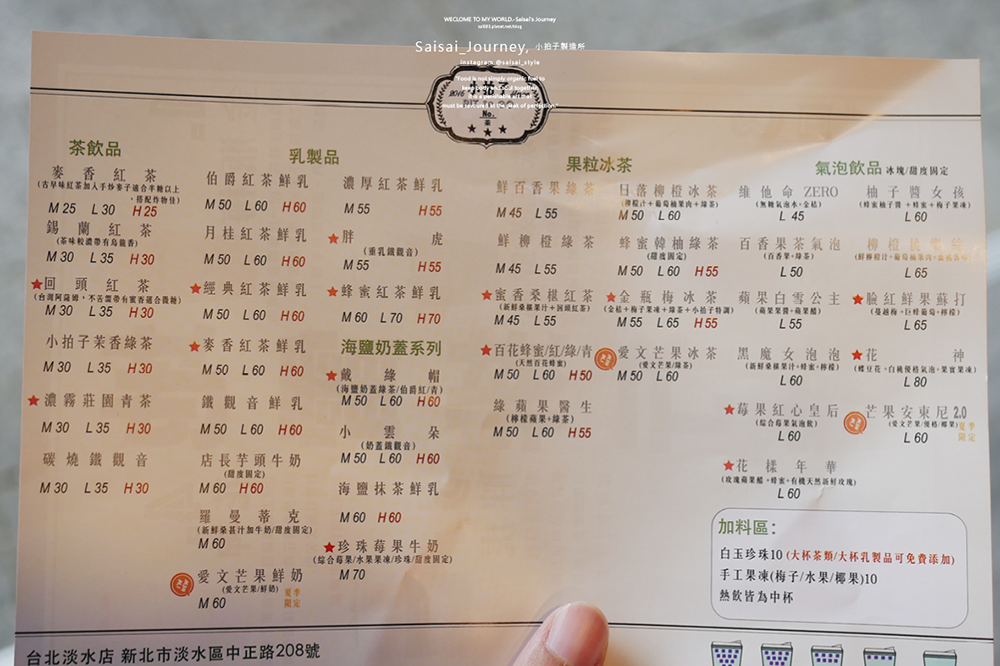 WELCOME TO MY WORLD.-Saisai's Journey
Saisai_Journey, 小拍子製造所
instagram @saisai_style
"Food is not simply organic fuel to
keep body and soul together,
must be savoured at the peak of perfection."
No.
茶飲品
麥香紅茶
(古早味紅茶加入手炒麥子適合半糖以上
,搭配炸物佳)
M 25 L 30 H 25
錫蘭紅茶
(茶味較濃帶有烏龍香)
M 30 L 35 H 30
★回頭紅茶
(台灣阿薩姆,不苦澀帶有蜜香適合微糖)
M 30 L 35 H 30
小拍子茉香綠茶
M 30 L 35 H 30
★濃霧莊園青茶
M 30 L 35 H 30
碳燒鐵觀音
M 30 L 35 H 30
乳製品
伯爵紅茶鮮乳
M 50 L 60 H 60
月桂紅茶鮮乳
M 50 L 60 H 60
★經典紅茶鮮乳
M 50 L 60 H 60
★麥香紅茶鮮乳
M 50 L 60 H 60
鐵觀音鮮乳
M 50 L 60 H 60
店長芋頭牛奶
(甜度固定)
M 60 H 60
羅曼蒂克
(新鮮桑甚汁加牛奶/甜度固定)
M 60
愛文芒果鮮奶
(愛文芒果/鮮奶)
夏季
限定
M 60
濃厚紅茶鮮乳
M 55 H 55
★胖虎
(重乳鐵觀音)
M 55 H 55
★蜂蜜紅茶鮮乳
M 60 L 70 H 70
海鹽奶蓋系列
★戴綠帽
(海鹽奶蓋綠茶/伯爵紅/青)
M 50 L 60 H 60
小雲朵
(奶蓋鐵觀音)
M 50 L 60 H 60
海鹽抹茶鮮乳
M 60 H 60
★珍珠莓果牛奶
(綜合莓果/水果果凍/珍珠/甜度固定)
M 70
果粒冰茶
鮮百香果綠茶
M 45 L 55
鮮柳橙綠茶
M 45 L 55
★蜜香桑椹紅茶
(新鮮桑椹果汁+回頭紅茶)
M 45 L 55
★百花蜂蜜/紅/綠/青
(天然百花蜂蜜)
M 50 L 60 H 50
綠蘋果醫生
(檸檬蘋果+綠茶)
M 50 L 60 H 55
日落柳橙冰茶
(柳橙汁+葡萄柚果肉+綠茶)
M 50 L 60
蜂蜜韓柚綠茶
(甜度固定)
M 50 L 60 H 55
★金瓶梅冰茶
(金桔+梅子果凍+綠茶+小拍子特調)
M 55 L 65 H 55
愛文芒果冰茶
(愛文芒果/綠茶)
M 50 L 60
氣泡飲品 冰塊/甜度固定
維他命 ZERO
(無糖氣泡水+金桔)
L 45
百香果茶氣泡
(百香果+綠茶)
L 50
蘋果白雪公主
(蘋果果醬+蘋果醋)
L 55
黑魔女泡泡
(新鮮桑椹果汁+蜂蜜+檸檬)
L 60
★莓果紅心皇后
(綜合莓果氣泡飲)
L 60
★花樣年華
(玫瑰蘋果醋+蜂蜜+有機天然新鮮玫瑰)
L 60
柚子醬女孩
(蜂蜜柚子醬+蜂蜜+梅子果凍)
L 60
L 65
★臉紅鮮果蘇打
(蔓越梅+巨蜂葡萄+檸檬)
L 65
★花神
(蝶豆花+白桃優格氣泡+果實果凍)
L 80
芒果安東尼2.0
(愛文芒果/優格/椰果)
夏季
限定
L 60
加料區:
白玉珍珠10 (大杯茶類/大杯乳製品可免費添加)
手工果凍(梅子/水果/椰果)10
熱飲皆為中杯
台北淡水店 新北市淡水區中正路208號